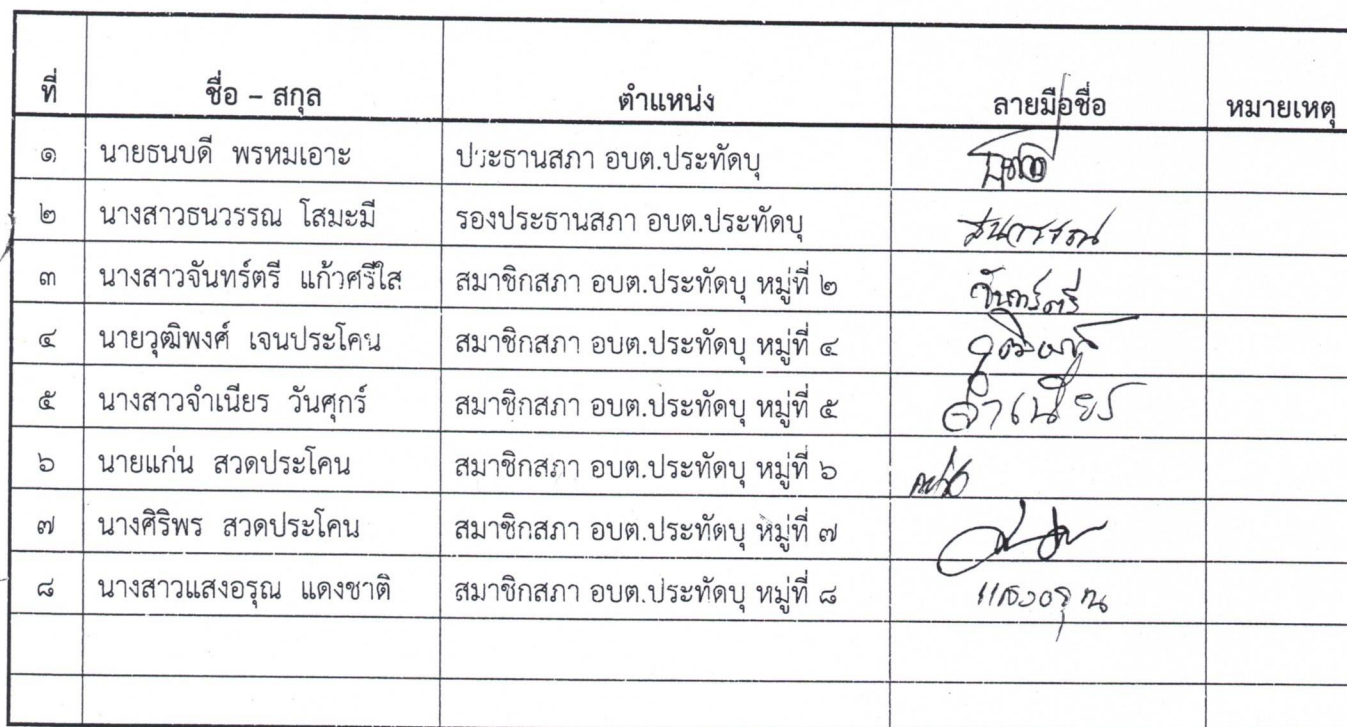 ที่ ชื่อ – สกุล ตำแหน่ง ลายมือชื่อ หมายเหตุ
๑ นายธนบดี พรหมเอาะ ประธานสภา อบต.ประทัดบุ
๒ นางสาวธนวรรณ โสมะมี รองประธานสภา อบต.ประทัดบุ ธนวรรณ
๓ นางสาวจันทร์ตรี แก้วศรีใส สมาชิกสภา อบต.ประทัดบุ หมู่ที่ ๒ จันทร์ตรี
๔ นายวุฒิพงศ์ เจนประโคน สมาชิกสภา อบต.ประทัดบุ หมู่ที่ ๔
๕ นางสาวจำเนียร วันศุกร์ สมาชิกสภา อบต.ประทัดบุ หมู่ที่ ๕ จำเนียร
๖ นายแก่น สวดประโคน สมาชิกสภา อบต.ประทัดบุ หมู่ที่ ๖
๗ นางศิริพร สวดประโคน สมาชิกสภา อบต.ประทัดบุ หมู่ที่ ๗
๘ นางสาวแสงอรุณ แดงชาติ สมาชิกสภา อบต.ประทัดบุ หมู่ที่ ๘ แสงอรุณ